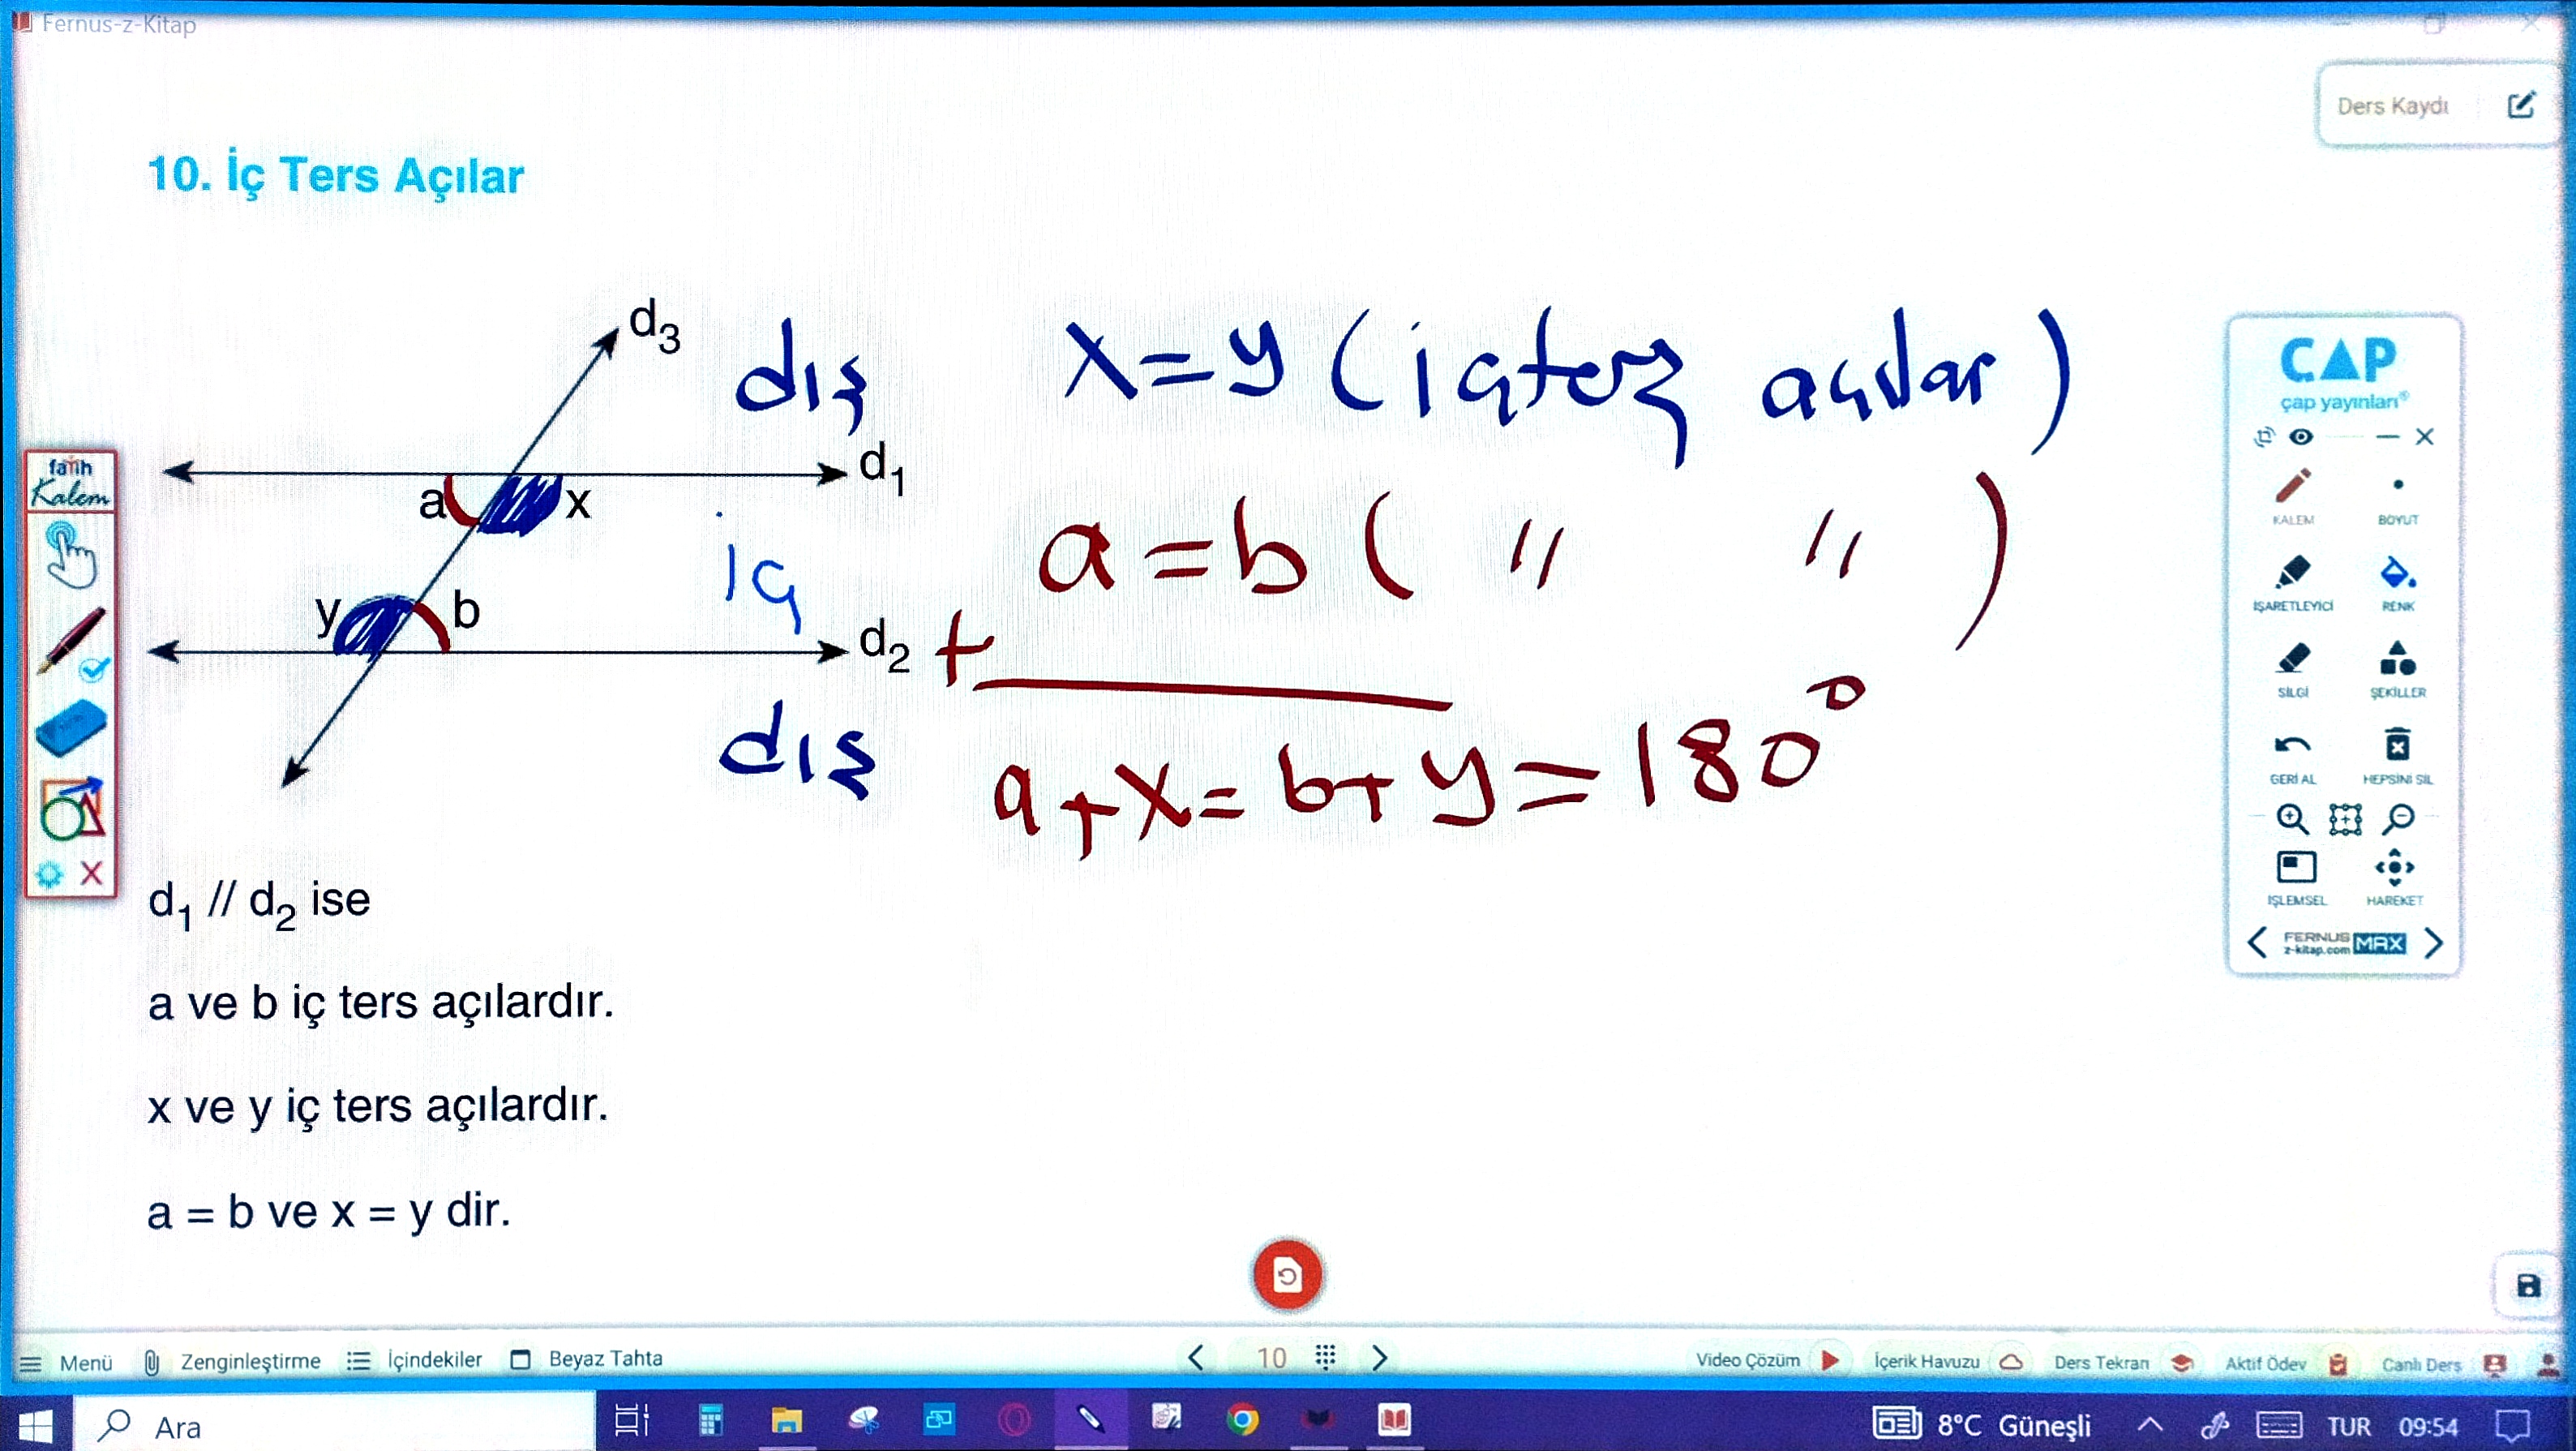 Fernus-z-Kitap
Ders Kaydı
10. İç Ters Açılar
d3
dış
x=y (içters açılar)
ÇAP
çap yayınları®
fatih
Kalem
d1
a
x
iç
a=b ( " " )
KALEM
BOYUT
İŞARETLEYİCİ
RENK
y
b
d2
+
SİLGİ
ŞEKİLLER
dış
a+x=b+y=180°
GERİ AL
HEPSİNİ SİL
İŞLEMSEL
HAREKET
FERNUS
z-kitap.com MAX
d1 // d2 ise
a ve b iç ters açılardır.
x ve y iç ters açılardır.
a = b ve x = y dir.
Menü Zenginleştirme İçindekiler Beyaz Tahta 10 Video Çözüm İçerik Havuzu Ders Tekrarı Aktif Ödev Canlı Ders
Ara 8°C Güneşli TUR 09:54